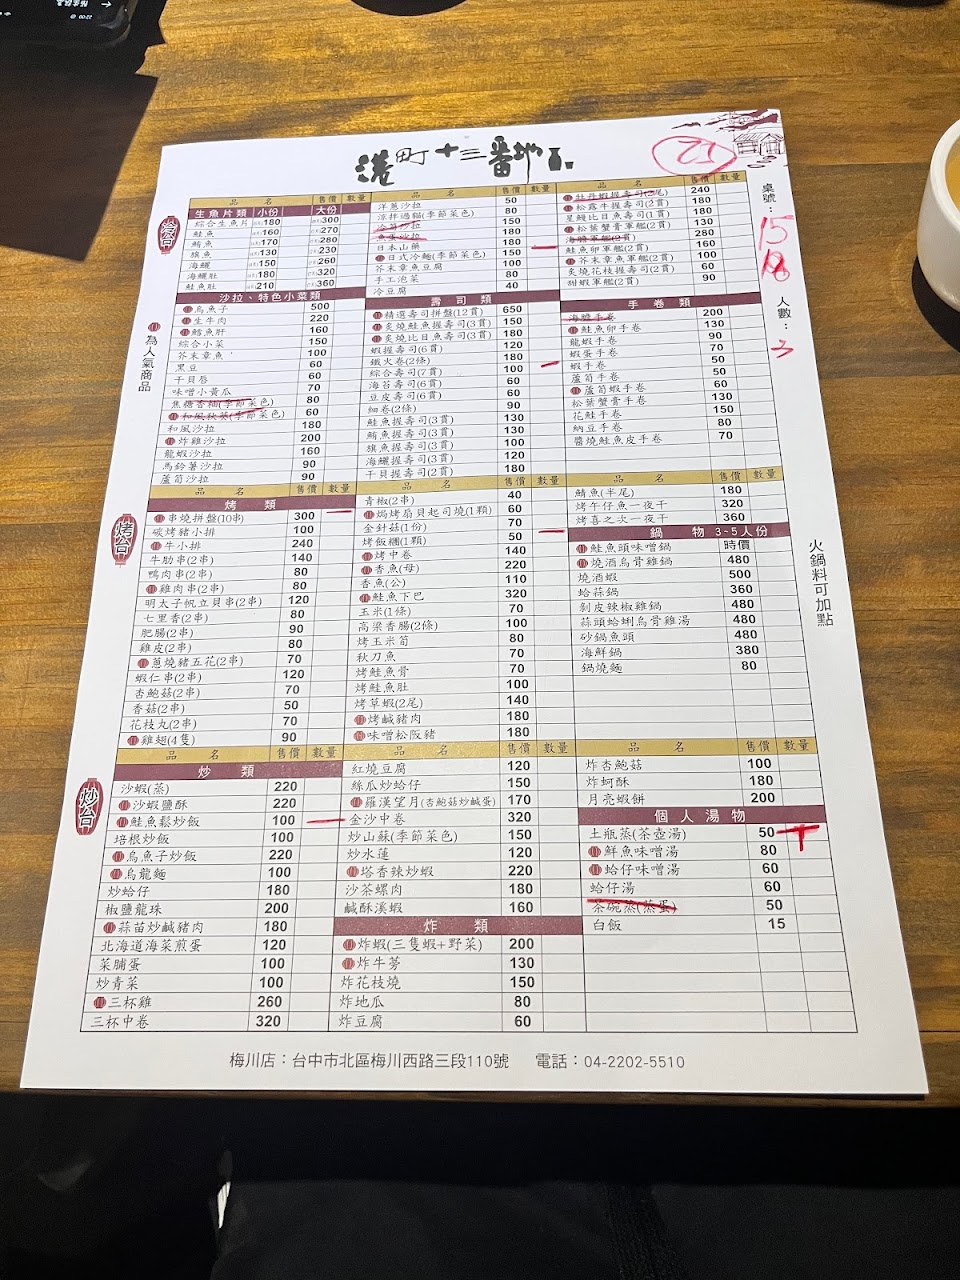 港町十三番地
21
桌號：
15
18
人數：3
冷台
品 名 售價 數量
生魚片類 小份 大份
綜合生魚片 180 300
鮭魚 160 270
鮪魚 170 280
旗魚 130 230
海鱺 150 260
海鱺肚 180 320
鮭魚肚 210 360
沙拉、特色小菜類
烏魚子 500
生牛肉 220
鱈魚肝 160
綜合小菜 150
芥末章魚 100
黑豆 60
干貝唇 60
味噌小黃瓜 70
焦糖香柚(季節菜色) 80
和風秋葵(季節菜色) 60
和風沙拉 180
炸雞沙拉 200
龍蝦沙拉 160
馬鈴薯沙拉 90
蘆筍沙拉 90
品 名 售價 數量
洋蔥沙拉 50
涼拌過貓(季節菜色) 80
冷筍沙拉 150
魚蛋沙拉 180
日本山藥 180
日式冷麵(季節菜色) 150
芥末章魚豆腐 100
手工泡菜 80
冷豆腐 40
壽司類
精選壽司拼盤(12貫) 650
炙燒鮭魚握壽司(3貫) 150
炙燒比目魚壽司(3貫) 180
蝦握壽司(6貫) 120
鐵火卷(2條) 180
綜合壽司(7貫) 100
海苔壽司(6貫) 60
豆皮壽司(6貫) 60
細卷(2條) 90
鮭魚握壽司(3貫) 130
鮪魚握壽司(3貫) 130
旗魚握壽司(3貫) 100
海鱺握壽司(3貫) 120
干貝握壽司(2貫) 180
品 名 售價 數量
牡丹蝦握壽司(2尾) 240
松露牛握壽司(2貫) 180
星鰻比目魚壽司(1貫) 180
松葉蟹膏軍艦(2貫) 130
海膽軍艦(2貫) 280
鮭魚卵軍艦(2貫) 160
芥末章魚軍艦(2貫) 100
炙燒花枝握壽司(2貫) 60
甜蝦軍艦(2貫) 90
手卷類
海膽手卷 200
鮭魚卵手卷 130
龍蝦手卷 90
蝦蛋手卷 70
蝦手卷 50
蘆筍手卷 50
蘆筍蝦手卷 60
松葉蟹膏手卷 130
花鮭手卷 150
納豆手卷 80
醬燒鮭魚皮手卷 70
為人氣商品
烤台
品 名 售價 數量
烤類
串燒拼盤(10串) 300
碳烤豬小排 100
牛小排 240
牛肋串(2串) 140
鴨肉串(2串) 80
雞肉串(2串) 80
明太子帆立貝串(2串) 120
七里香(2串) 80
肥腸(2串) 90
雞皮(2串) 80
蔥燒豬五花(2串) 70
蝦仁串(2串) 120
杏鮑菇(2串) 70
香菇(2串) 50
花枝丸(2串) 70
雞翅(4隻) 90
品 名 售價 數量
青椒(2串) 40
焗烤扇貝起司燒(1顆) 60
金針菇(1份) 70
烤飯糰(1顆) 50
烤中卷 140
香魚(母) 220
香魚(公) 110
鮭魚下巴 320
玉米(1條) 70
高粱香腸(2條) 100
烤玉米筍 80
秋刀魚 70
烤鮭魚骨 70
烤鮭魚肚 100
烤草蝦(2尾) 140
烤鹹豬肉 180
味噌松阪豬 180
品 名 售價 數量
鯖魚(半尾) 180
烤午仔魚一夜干 320
烤喜之次一夜干 360
鍋物 3-5人份
鮭魚頭味噌鍋 時價
燒酒烏骨雞鍋 480
燒酒蝦 500
蛤蒜鍋 360
剝皮辣椒雞鍋 480
蒜頭蛤蜊烏骨雞湯 480
砂鍋魚頭 480
海鮮鍋 380
鍋燒麵 80
火鍋料可加點
炒台
品 名 售價 數量
炒類
沙蝦(蒸) 220
沙蝦鹽酥 220
鮭魚鬆炒飯 100
培根炒飯 100
烏魚子炒飯 220
烏龍麵 100
炒蛤仔 180
椒鹽龍珠 200
蒜苗炒鹹豬肉 180
北海道海菜煎蛋 120
菜脯蛋 100
炒青菜 100
三杯雞 260
三杯中卷 320
品 名 售價 數量
紅燒豆腐 120
絲瓜炒蛤仔 150
羅漢望月(杏鮑菇炒鹹蛋) 170
金沙中卷 320
炒山蘇(季節菜色) 150
炒水蓮 120
塔香辣炒蝦 220
沙茶螺肉 180
鹹酥溪蝦 160
炸類
炸蝦(三隻蝦+野菜) 200
炸牛蒡 130
炸花枝燒 150
炸地瓜 80
炸豆腐 60
品 名 售價 數量
炸杏鮑菇 100
炸蚵酥 180
月亮蝦餅 200
個人湯物
土瓶蒸(茶壺湯) 50
鮮魚味噌湯 80
蛤仔味噌湯 60
蛤仔湯 60
茶碗蒸(蒸蛋) 50
白飯 15
梅川店：台中市北區梅川西路三段110號 電話：04-2202-5510